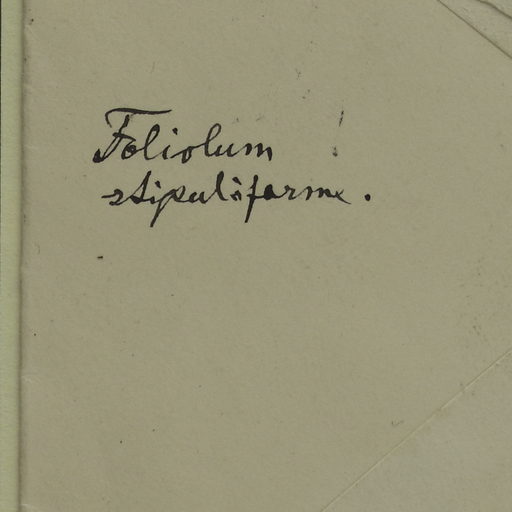 Foliolum
stipuliforme.